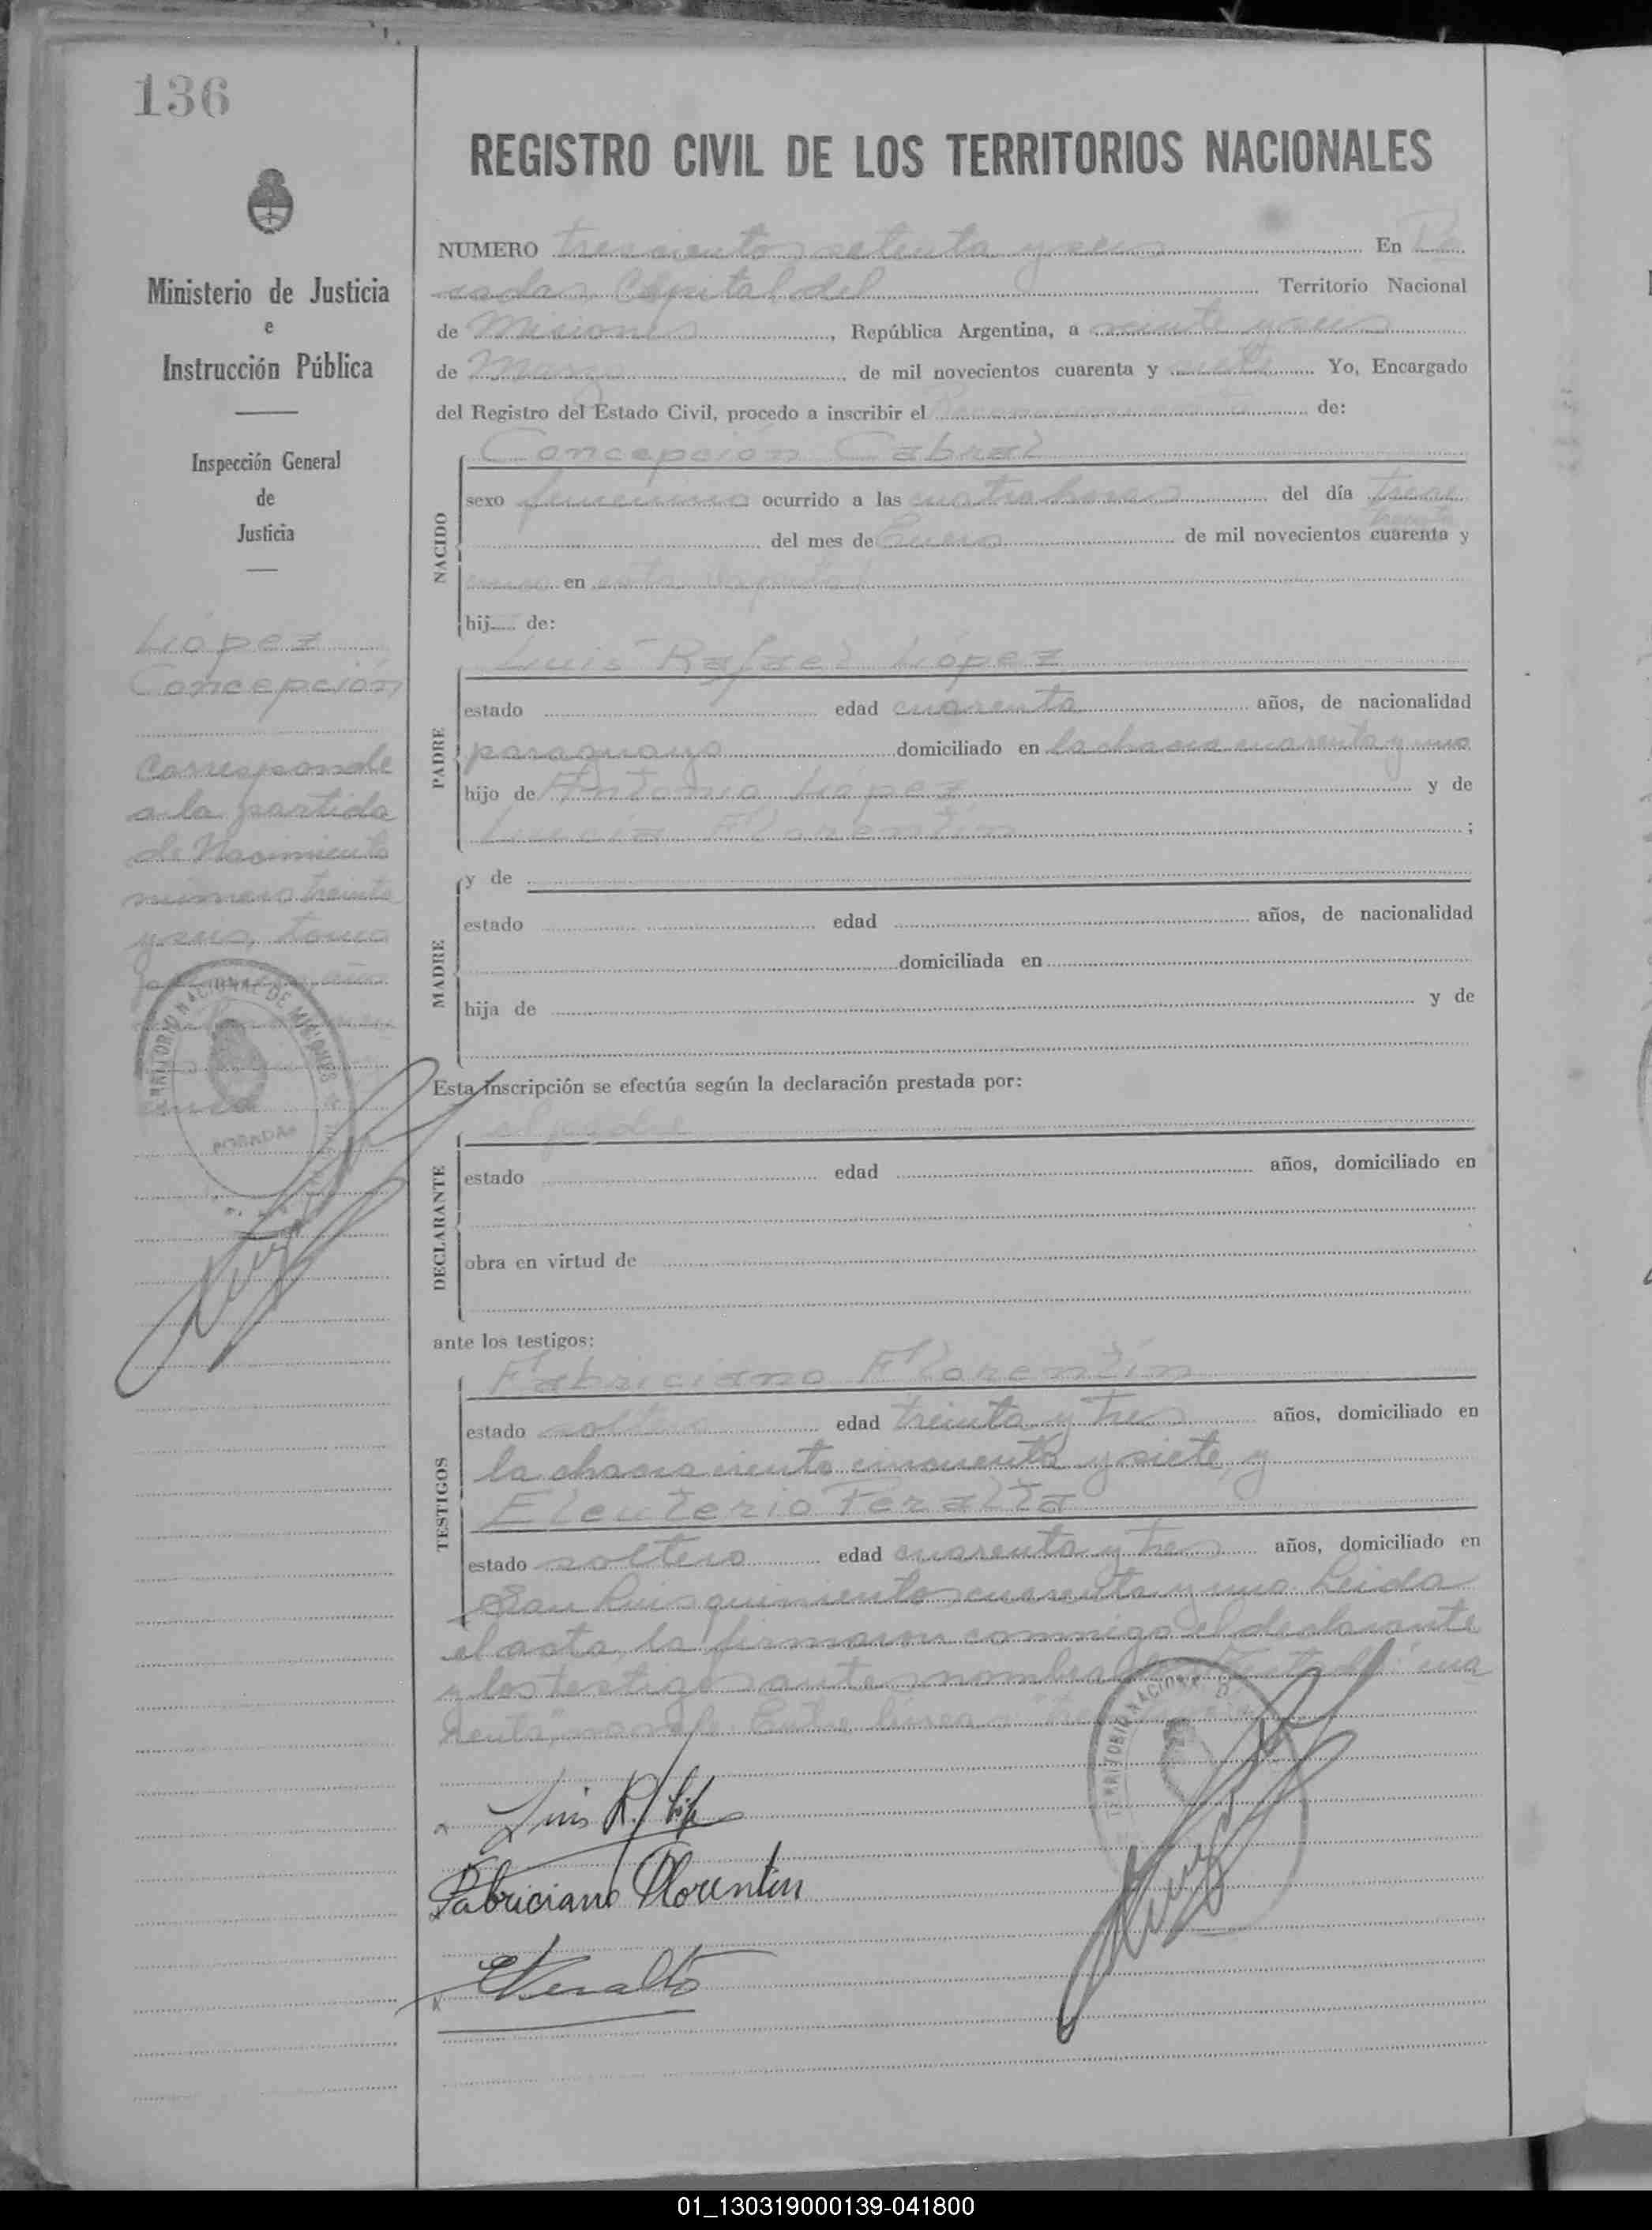 136
REGISTRO CIVIL DE LOS TERRITORIOS NACIONALES
Ministerio de Justicia
e
Instrucción Pública
Inspección General
de
Justicia
López
Concepción
Corresponde
a la partida
de Nacimiento
número treinta
y seis, tomo
TERRITORIO NACIONAL DE MISIONES
POSADAS
NUMERO trescientos setenta y seis En Po
sadas Capital del Territorio Nacional
de Misiones, República Argentina, a veinte y seis
de Marzo de mil novecientos cuarenta y siete Yo, Encargado
del Registro del Estado Civil, procedo a inscribir el Reconocimiento de:
NACIDO
Concepción Cabral
sexo femenino ocurrido a las cuatro horas del día trece
treinta
del mes de Enero de mil novecientos cuarenta y
en esta Capital
hij de:
PADRE
Luis Rafael López
estado edad cuarenta años, de nacionalidad
paraguayo domiciliado en la chacra cuarenta y uno
hijo de Antonio Lopez y de
Lucía Florentín ;
MADRE
y de
estado edad años, de nacionalidad
domiciliada en
hija de y de
Esta inscripción se efectúa según la declaración prestada por:
DECLARANTE
el padre
estado edad años, domiciliado en
obra en virtud de
ante los testigos:
TESTIGOS
Fabriciano Florentín
estado soltero edad treinta y tres años, domiciliado en
la chacra ciento cincuenta y siete, y
Eleuterio Peralta
estado soltero edad cuarenta y tres años, domiciliado en
San Luis quinientos cuarenta y uno Leida
el acta, la firmaron conmigo el declarante
y los testigos antes nombrados. Testado: "cua
renta", no vale. Entre líneas "treinta"
Luis R. López
Fabriciano Florentin
E Peralta
01_130319000139-041800